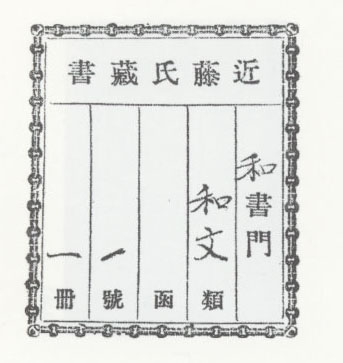 近藤氏藏書
和書門
和文類
函
一號
一冊